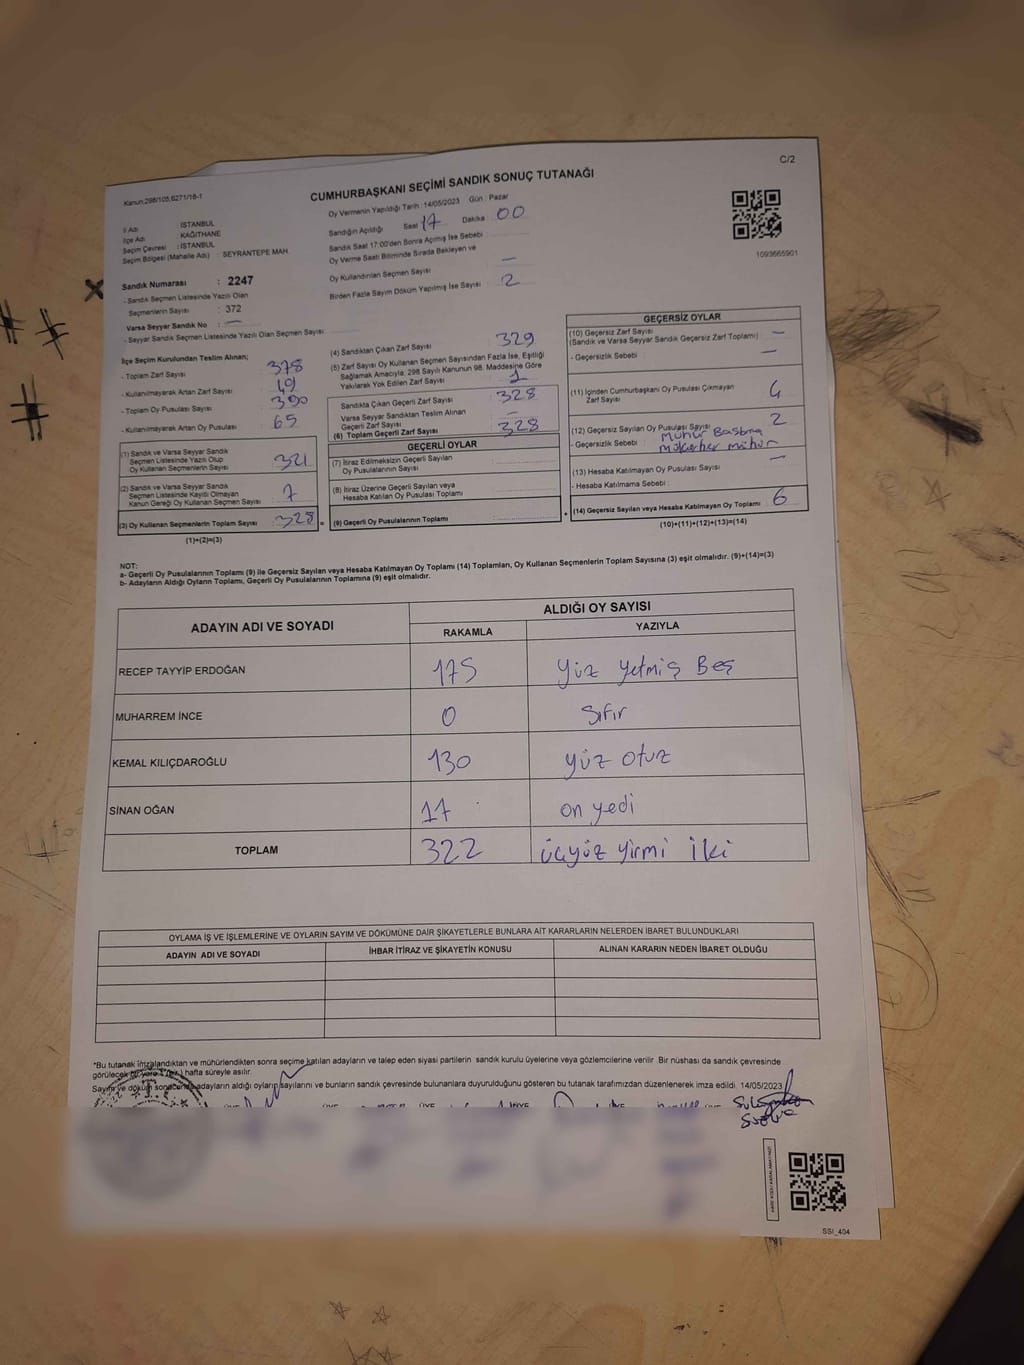 C/2
Kanun:298/105,6271/18-1
CUMHURBAŞKANI SEÇİMİ SANDIK SONUÇ TUTANAĞI
Oy Vermenin Yapıldığı Tarih : 14/05/2023 Gün : Pazar
Sandığın Açıldığı Saat 17 Dakika : 00
Sandık Saat 17:00'den Sonra Açımış İse Sebebi :
Oy Verme Saati Bitiminde Sırada Bekleyen ve
Oy Kullandırılan Seçmen Sayısı —
Birden Fazla Sayım Döküm Yapılmış İse Sayısı : 2
İl Adı : İSTANBUL
İlçe Adı : KAĞITHANE
Seçim Çevresi : İSTANBUL
Seçim Bölgesi (Mahalle Adı) : SEYRANTEPE MAH
1093665901
Sandık Numarası : 2247
- Sandık Seçmen Listesinde Yazılı Olan
Seçmenlerin Sayısı : 372
Varsa Seyyar Sandık No : —
- Seyyar Sandık Seçmen Listesinde Yazılı Olan Seçmen Sayısı
İlçe Seçim Kurulundan Teslim Alınan;
- Toplam Zarf Sayısı : 378
- Kullanılmayarak Artan Zarf Sayısı : 19
- Toplam Oy Pusulası Sayısı : 390
- Kullanılmayarak Artan Oy Pusulası : 65
(1) Sandık ve Varsa Seyyar Sandık
Seçmen Listesinde Yazılı Olup
Oy Kullanan Seçmenlerin Sayısı : 321
(2) Sandık ve Varsa Seyyar Sandık
Seçmen Listesinde Kayıtlı Olmayan
Kanun Gereği Oy Kullanan Seçmen Sayısı : 7
(3) Oy Kullanan Seçmenlerin Toplam Sayısı : 328 =
(1)+(2)=(3)
(4) Sandıktan Çıkan Zarf Sayısı : 329
(5) Zarf Sayısı Oy Kullanan Seçmen Sayısından Fazla İse, Eşitliği
Sağlamak Amacıyla; 298 Sayılı Kanunun 98. Maddesine Göre
Yakılarak Yok Edilen Zarf Sayısı : 1
Sandıkta Çıkan Geçerli Zarf Sayısı : 328
Varsa Seyyar Sandıktan Teslim Alınan
Geçerli Zarf Sayısı : —
(6) Toplam Geçerli Zarf Sayısı : 328
GEÇERLİ OYLAR
(7) İtiraz Edilmeksizin Geçerli Sayılan
Oy Pusulalarının Sayısı :
(8) İtiraz Üzerine Geçerli Sayılan veya
Hesaba Katılan Oy Pusulası Toplamı :
(9) Geçerli Oy Pusulalarının Toplamı :
GEÇERSİZ OYLAR
(10) Geçersiz Zarf Sayısı
(Sandık ve Varsa Seyyar Sandık Geçersiz Zarf Toplamı) : —
- Geçersizlik Sebebi : —
(11) İçinden Cumhurbaşkanı Oy Pusulası Çıkmayan
Zarf Sayısı : 4
(12) Geçersiz Sayılan Oy Pusulası Sayısı : 2
- Geçersizlik Sebebi : Mühür Basılma
mühür
(13) Hesaba Katılmayan Oy Pusulası Sayısı : —
- Hesaba Katılmama Sebebi :
(14) Geçersiz Sayılan veya Hesaba Katılmayan Oy Toplamı : 6
(10)+(11)+(12)+(13)=(14)
NOT:
a- Geçerli Oy Pusulalarının Toplamı (9) ile Geçersiz Sayılan veya Hesaba Katılmayan Oy Toplamı (14) Toplamları, Oy Kullanan Seçmenlerin Toplam Sayısına (3) eşit olmalıdır. (9)+(14)=(3)
b- Adayların Aldığı Oyların Toplamı, Geçerli Oy Pusulalarının Toplamına (9) eşit olmalıdır.
ADAYIN ADI VE SOYADI
ALDIĞI OY SAYISI
RAKAMLA YAZIYLA
RECEP TAYYİP ERDOĞAN 175 Yüz yetmiş Beş
MUHARREM İNCE 0 Sıfır
KEMAL KILIÇDAROĞLU 130 yüz otuz
SİNAN OĞAN 17 on yedi
TOPLAM 322 üçyüz yirmi iki
OYLAMA İŞ VE İŞLEMLERİNE VE OYLARIN SAYIM VE DÖKÜMÜNE DAİR ŞİKAYETLERLE BUNLARA AİT KARARLARIN NELERDEN İBARET BULUNDUKLARI
ADAYIN ADI VE SOYADI İHBAR İTİRAZ VE ŞİKAYETİN KONUSU ALINAN KARARIN NEDEN İBARET OLDUĞU
*Bu tutanak imzalandıktan ve mühürlendikten sonra seçime katılan adayların ve talep eden siyasi partilerin sandık kurulu üyelerine veya gözlemcilerine verilir. Bir nüshası da sandık çevresinde
görülecek bir yere 1 (bir) hafta süreyle asılır.
Sayım ve döküm sonucunda adayların aldığı oyların sayılarını ve bunların sandık çevresinde bulunanlara duyurulduğunu gösteren bu tutanak tarafımızdan düzenlenerek imza edildi. 14/05/2023
SSİ_404